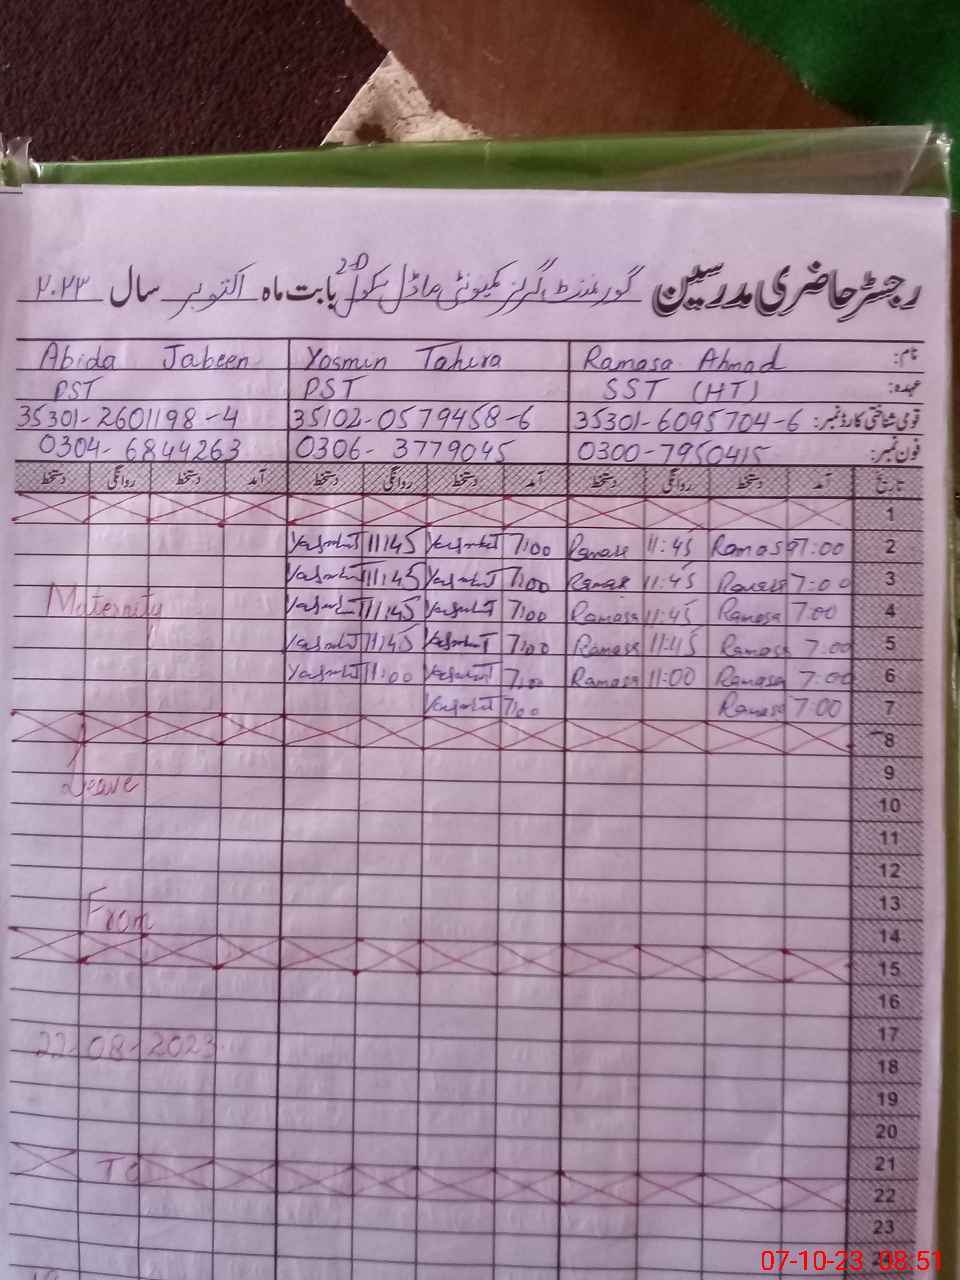 رجسٹر حاضری مدرسین گورنمنٹ گرلز کمیونٹی ماڈل سکول 2-D بابت ماہ اکتوبر سال ۲۰۲۳
نام: Ramasa Ahmad Yasmin Tahira Abida Jabeen
عہدہ: SST (HT) PST PST
قومی شناختی کارڈ نمبر: 35301-6095704-6 35102-0579458-6 35301-2601198-4
فون نمبر: 0300-7950415 0306-3779045 0304-6844263
تاریخ آمد دستخط روانگی دستخط آمد دستخط روانگی دستخط آمد دستخط روانگی دستخط
1
2 7:00 Ramasa 11:45 Ramasa 7:00 11:45
3 7:00 Ramasa 11:45 Ramasa 7:00 11:45
4 7:00 Ramasa 11:45 Ramasa 7:00 11:45 Maternity
5 7:00 Ramasa 11:45 Ramasa 7:00 11:45
6 7:00 Ramasa 11:00 Ramasa 7:00 11:00
7 7:00 Ramasa 7:00
8
9 Leave
10
11
12
13 From
14
15
16
17 22-08-2023
18
19
20
21 TO
22
23
07-10-23 08:51